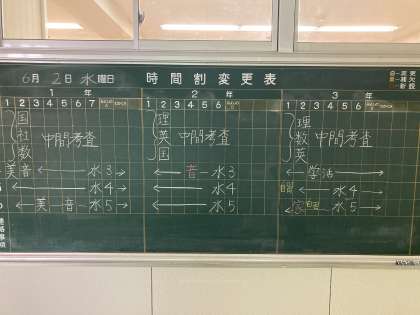 6月 2日 水曜日 時間割変更表
1年 2年 3年
1 2 3 4 5 6 7 1 2 3 4 5 6 7 1 2 3 4 5 6 7
国 社 数 中間考査 理 英 国 中間考査 理 数 英 中間考査
美 音 ← 水3 → ← 音 水3 ← 学活 →
← 水4 → ← 水4 自習 ← 水4 →
← 美 音 水5 → ← 水5 家 自習 水5 →